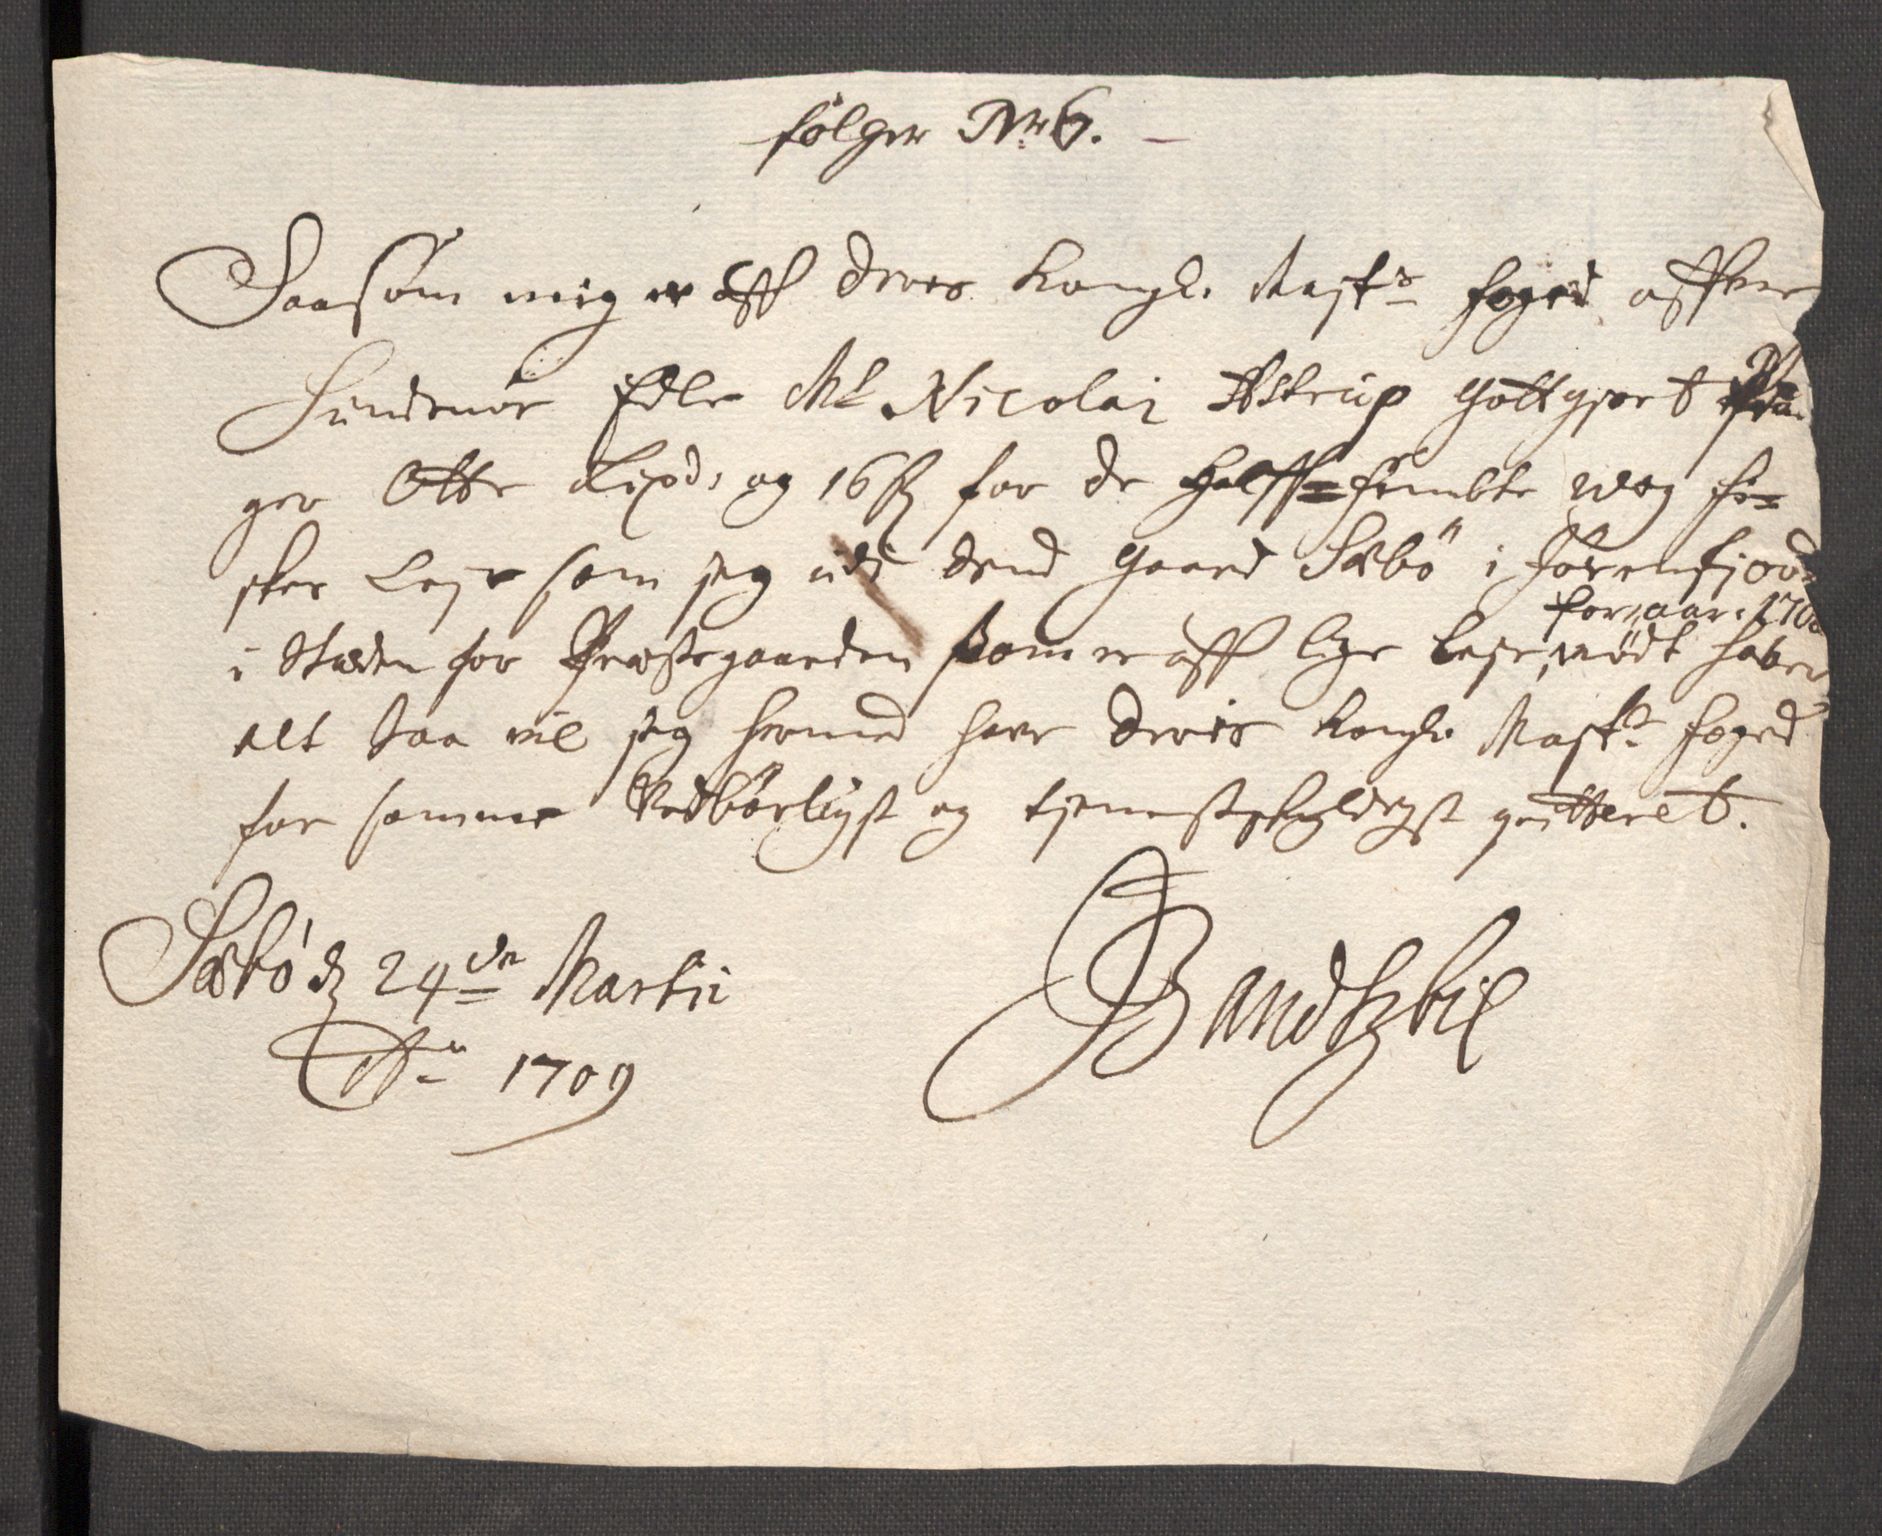 følger Nr. 6.
Saasom mig er aff deris Kongl. Mayts foged offver
Sundmør Edle Mr Nicolai Astrup gottgjort Pen-
ger Otte Rixd. og 16 ß for de Halff-fembte Wog fi-
sker Leje som jeg udi dend gaard Sæbø i Jørenfjord
i Stæden for Præstegaarden som er aff lige Leje,
for aar 1708
nødt haber
alt saa vil jeg hermed have deris Kongl. Mayts foged
for samme Vedbørligst og tjenestskyldigst qvitteret.
Sæbø d 24de Martii
Ao 1709